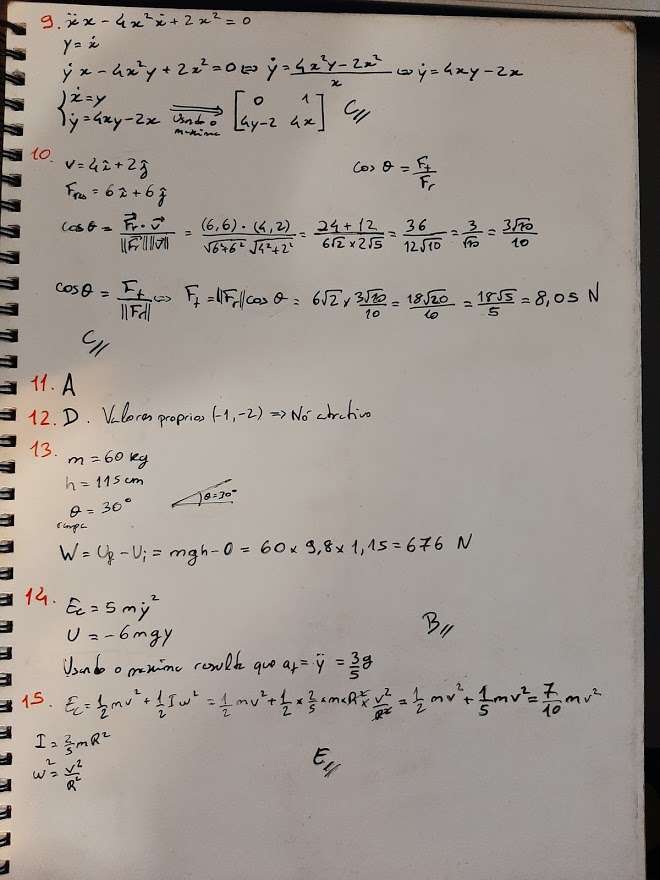 9. ẍx - 4x²ẋ + 2x² = 0
y = ẋ
ẏx - 4x²y + 2x² = 0 ⇔ ẏ = (4x²y - 2x²)/x ⇔ ẏ = 4xy - 2x
{ ẋ = y
ẏ = 4xy - 2x ⟹ usando o maxima [0 1; 4y-2 4x] C//
10. v = 4î + 2ĵ cos θ = Ft/Fr
Fres = 6î + 6ĵ
cos θ = F⃗r·v⃗/(||F⃗r|| ||v⃗||) = (6,6)·(4,2)/(√6²+6² √4²+2²) = (24+12)/(6√2×2√5) = 36/(12√10) = 3/√10 = 3√10/10
cos θ = Ft/||Fr|| ⇔ Ft = ||Fr|| cos θ = 6√2 × 3√10/10 = 18√20/10 = 18√5/5 = 8,05 N
C//
11. A
12. D. Valores proprios (-1,-2) => Nó atrativo
13.
m = 60 kg
h = 115 cm
θ = 30° θ=30°
rampa
W = Uf - Ui = mgh - 0 = 60 × 9,8 × 1,15 = 676 N
14.
Ec = 5mẏ²
U = -6mgy B//
Usando o maxima resulta que at = ÿ = 3/5 g
15. Ec = 1/2 mv² + 1/2 Iw² = 1/2 mv² + 1/2 × 2/5 × m × R² × v²/R² = 1/2 mv² + 1/5 mv² = 7/10 mv²
I = 2/5 mR²
w² = v²/R² E//